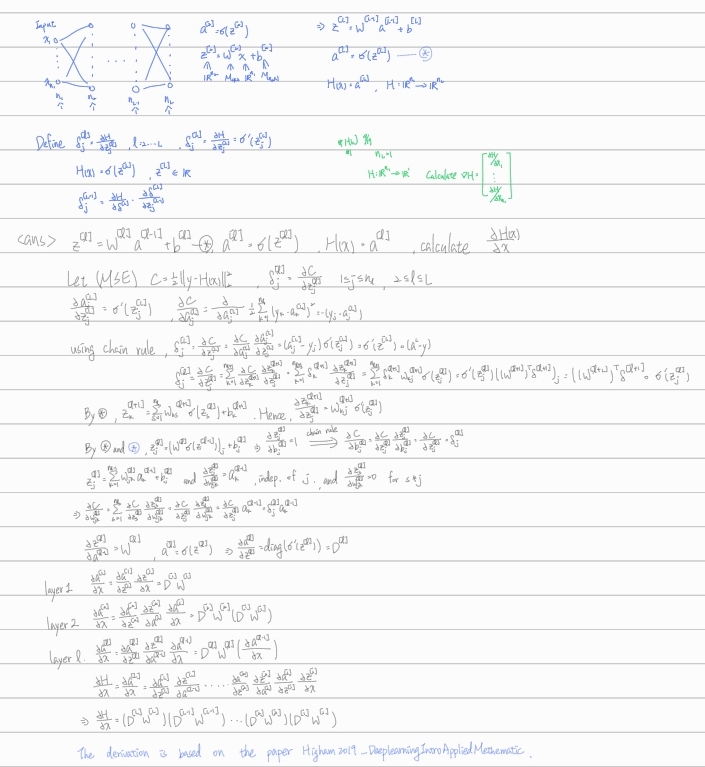 Input
x₁
xₙ₁
n₁ n₂ n_{L-1} n_L
a^{[2]} = σ(z^{[2]}) ⇒ z^{[L]} = W^{[L]} a^{[L-1]} + b^{[L]}
z^{[2]} = W^{[2]} x + b^{[2]} a^{[L]} = σ(z^{[L]}) —— ⊛
H(x) = a^{[L]}, H: ℝ^{n₁} → ℝ^{n_L}
Define δ_j^{[l]} = ∂H/∂z_j^{[l]}, l=2…L, δ_j^{[L]} = ∂H/∂z_j^{[L]} = σ'(z_j^{[L]})
n_L=1
H(x) = σ(z^{[L]}), z^{[L]} ∈ ℝ H: ℝ^{n₁} → ℝ Calculate ∇H = [∂H/∂x₁ ⋮ ∂H/∂xₙ₁]
<ans> z^{[l]} = W^{[l]} a^{[l-1]} + b^{[l]} —⊛, a^{[l]} = σ(z^{[l]}), H(x) = a^{[L]}, calculate ∂H(x)/∂x
Let (MSE) C = ½||y-H(x)||₂², δ_j^{[l]} = ∂C/∂z_j^{[l]} 1≤j≤n_l, 2≤l≤L
∂a_j^{[L]}/∂z_j^{[L]} = σ'(z_j^{[L]}), ∂C/∂a_j^{[L]} = ∂/∂a_j^{[L]} ½ Σ_{k=1}^{n_L} (y_k - a_k^{[L]})² = -(y_j - a_j^{[L]})
using chain rule, δ_j^{[L]} = ∂C/∂z_j^{[L]} = ∂C/∂a_j^{[L]} ∂a_j^{[L]}/∂z_j^{[L]} = (a_j^{[L]} - y_j) σ'(z_j^{[L]}) = σ'(z^{[L]}) ∘ (a^L - y)
δ_j^{[l]} = ∂C/∂z_j^{[l]} = Σ_{k=1}^{n_{l+1}} ∂C/∂z_k^{[l+1]} ∂z_k^{[l+1]}/∂z_j^{[l]} = Σ_{k=1}^{n_{l+1}} δ_k^{[l+1]} ∂z_k^{[l+1]}/∂z_j^{[l]} = Σ_{k=1}^{n_{l+1}} δ_k^{[l+1]} W_{kj}^{[l+1]} σ'(z_j^{[l]}) = σ'(z_j^{[l]}) ((W^{[l+1]})^T δ^{[l+1]})_j = ((W^{[l+1]})^T δ^{[l+1]} ∘ σ'(z_j^{[l]})
By ⊛, z_k^{[l+1]} = Σ_{s=1}^{n_l} W_{ks}^{[l+1]} σ(z_s^{[l]}) + b_k^{[l+1]}. Hence, ∂z_k^{[l+1]}/∂z_j^{[l]} = W_{kj}^{[l+1]} σ'(z_j^{[l]})
By ⊛ and ⊛, z_j^{[l]} = (W^{[l]} σ(z^{[l-1]}))_j + b_j^{[l]} ⇒ ∂z_j^{[l]}/∂b_j^{[l]} = 1 chain rule ⟹ ∂C/∂b_j^{[l]} = ∂C/∂z_j^{[l]} ∂z_j^{[l]}/∂b_j^{[l]} = ∂C/∂z_j^{[l]} = δ_j^{[l]}
z_j^{[l]} = Σ_{k=1}^{n_{l-1}} W_{jk}^{[l]} a_k^{[l-1]} + b_j^{[l]} and ∂z_j^{[l]}/∂W_{jk}^{[l]} = a_k^{[l-1]}, indep. of j. and ∂z_s^{[l]}/∂W_{jk}^{[l]} = 0 for s≠j
⇒ ∂C/∂W_{jk}^{[l]} = Σ_{s=1}^{n_l} ∂C/∂z_s^{[l]} ∂z_s^{[l]}/∂W_{jk}^{[l]} = ∂C/∂z_j^{[l]} ∂z_j^{[l]}/∂W_{jk}^{[l]} = ∂C/∂z_j^{[l]} a_k^{[l-1]} = δ_j^{[l]} a_k^{[l-1]}
∂z^{[l]}/∂a^{[l-1]} = W^{[l]}, a^{[l]} = σ(z^{[l]}) ⇒ ∂a^{[l]}/∂z^{[l]} = diag(σ'(z^{[l]})) = D^{[l]}
layer 1 ∂a^{[2]}/∂x = ∂a^{[2]}/∂z^{[2]} ∂z^{[2]}/∂x = D^{[2]} W^{[2]}
layer 2 ∂a^{[3]}/∂x = ∂a^{[3]}/∂z^{[3]} ∂z^{[3]}/∂a^{[2]} ∂a^{[2]}/∂x = D^{[3]} W^{[3]} (D^{[2]} W^{[2]})
layer l. ∂a^{[l]}/∂x = ∂a^{[l]}/∂z^{[l]} ∂z^{[l]}/∂a^{[l-1]} ∂a^{[l-1]}/∂x = D^{[l]} W^{[l]} (∂a^{[l-1]}/∂x)
∂H/∂x = ∂a^{[L]}/∂x = ∂a^{[L]}/∂z^{[L]} ∂z^{[L]}/∂a^{[L-1]} ⋯⋯ ∂a^{[3]}/∂z^{[3]} ∂z^{[3]}/∂a^{[2]} ∂a^{[2]}/∂z^{[2]} ∂z^{[2]}/∂x
⇒ ∂H/∂x = (D^{[L]} W^{[L]})(D^{[L-1]} W^{[L-1]}) ⋯ (D^{[3]} W^{[3]})(D^{[2]} W^{[2]})
The derivation is based on the paper Higham 2019 _ DeeplearningIntroAppliedMethematic.